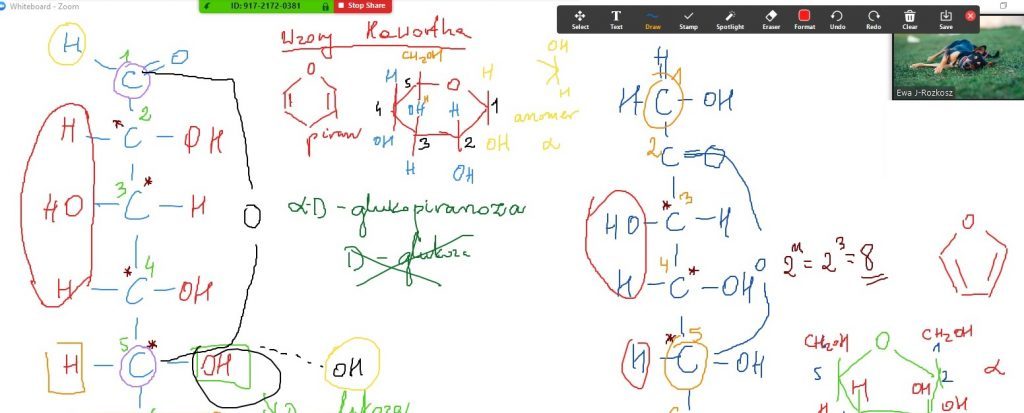 Whiteboard - Zoom
ID: 917-2172-0381
Stop Share
Select
Text
Draw
Stamp
Spotlight
Eraser
Format
Undo
Redo
Clear
Save
Ewa J-Rozkosz
Wzory Hawortha
H
1
C = O
2
H - C * - OH
3
HO - C * - H
4
H - C * - OH
5
H - C * - OH
O
OH
O
piran
CH2OH
5
O
H
H
H
4
OH
H
1
OH
3
2
OH
H
OH
OH
H
anomer
α
α-D-glukopiranoza
D-glukoza
H
1
H - C - OH
2
C = O
3
HO - C * - H
4
H - C * - OH
O
5
H - C * - OH
2^n = 2^3 = 8
O
CH2OH
O
CH2OH
1
5
2
α
H
OH
OH